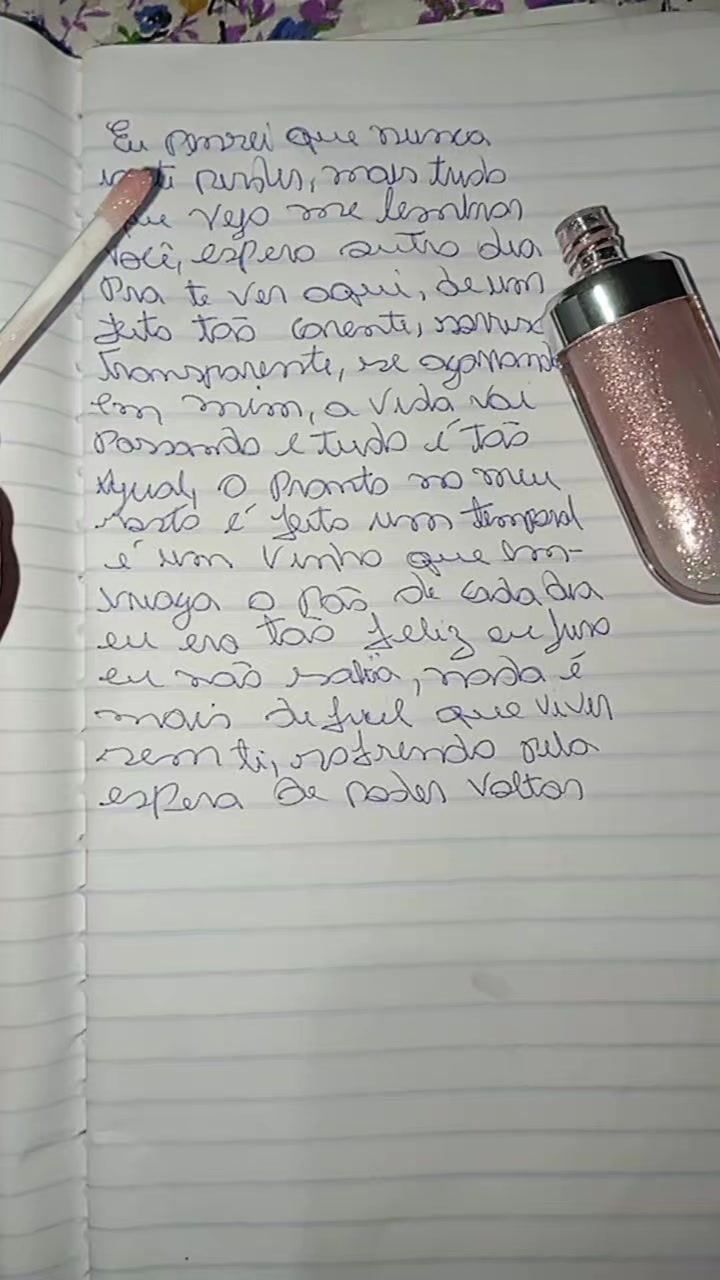 Eu pensei que nunca
ti perder, mais tudo
que vejo me lembrar
você, espero outro dia
Pra te ver aqui, de um
jeito tão carente, sorriso
transparente, se agarrando
em mim, a vida vai
passando e tudo é tão
igual, o pranto no meu
rosto é feito um temporal
é um vinho que em-
o pão de cada dia
eu era tão feliz eu juro
eu não sabia, nada é
mais deficil que viver
sem ti, sofrendo pela
espera de poder voltar